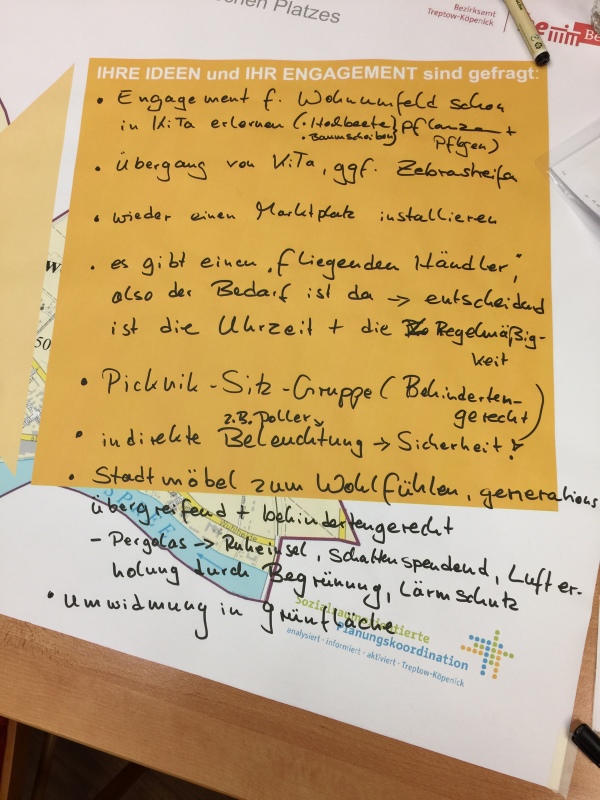 schen Platzes
Bezirksamt
Treptow-Köpenick
Be
IHRE IDEEN und IHR ENGAGEMENT sind gefragt:
• Engagement f. Wohnumfeld schon
in KiTa erlernen (• Hochbeete } Pflanzen +
• Baumscheiben Pflegen)
• Übergang von KiTa, ggf. Zebrastreifen
• wieder einen Marktplatz installieren
• es gibt einen „fliegenden Händler",
also der Bedarf ist da → entscheidend
ist die Uhrzeit + die Regelmäßig-
keit
• Picknik-Sitz-Gruppe (Behinderten-
gerecht
z.B. Poller
• indirekte Beleuchtung → Sicherheit!
• Stadtmöbel zum Wohlfühlen, generations
übergreifend + behindertengerecht
- Pergolas → Ruheinsel, Schattenspendend, Lufter-
holung durch Begrünung, Lärmschutz
• Umwidmung in Grünfläche
W
50
SPREE
Sozialraumorientierte
Planungskoordination
analysiert · informiert · aktiviert · Treptow-Köpenick